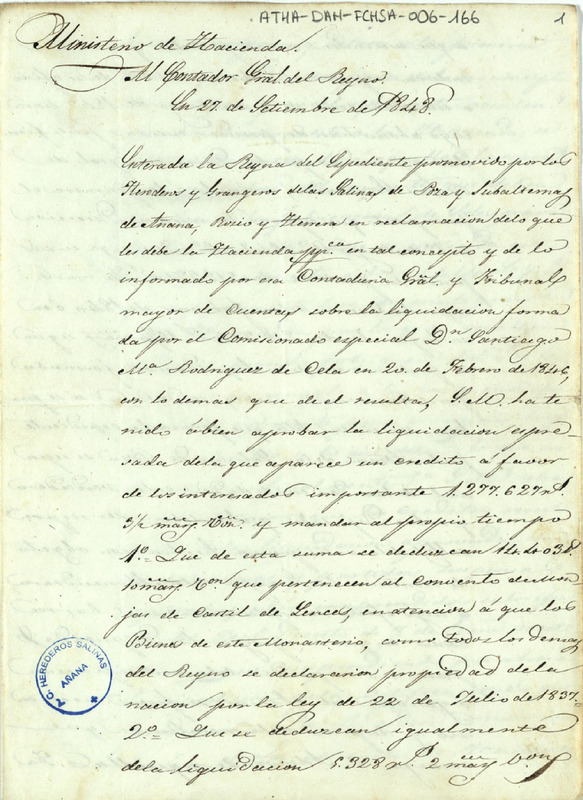 ATHA-DAH-FCHSA-006-166
1
Ministerio de Hacienda.
Al Contador Gral. del Reyno.
En 27 de Setiembre de 1848.
Enterada la Reyna del Espediente promovido por los
Herederos y Grangeros delas Salinas de Poza y Subalternas
de Añana, Rosio y Herrera en reclamacion delo que
les debe la Hacienda pp.ca en tal concepto y de lo
informado por esa Contaduria Gral. y Tribunal
mayor de Cuentas sobre la liquidacion forma
da por el Comisionado especial D.n Santiago
M.a Rodriguez de Cela en 20 de Febrero de 1846,
con lo demas que de el resulta, S.M. ha te
nido ábien aprobar la liquidacion espre-
sada dela que aparece un credito á favor
de los interesados importante 1.277.627 r.s
3½ mrs. Von. y mandar al propio tiempo
1.º Que de esta suma se deduzcan 144.038
10 mrs. Von que pertenecen al Convento de Mon
jas de Castil de Lences, en atencion á que los
Bienes de este Monasterio, como todos los demas
del Reyno se declararon propiedad dela
nacion por la ley de 22 de Julio de 1837.
2.º Que se deduzcan igualmente
dela liquidacion 5.328 r.s 2 mrs. Von
T.C. HEREDEROS SALINAS
AÑANA